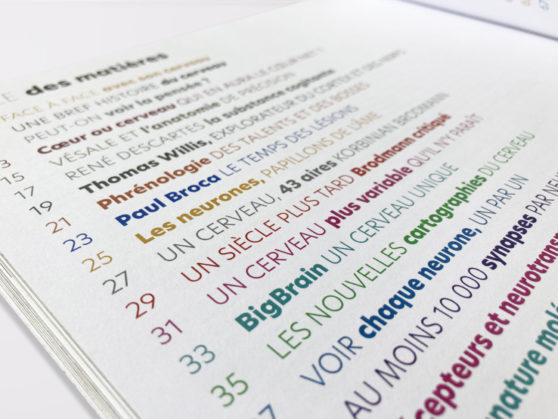 E des matières
FACE À FACE avec son cerveau
UNE BREF HISTOIRE du cerveau
PEUT-ON voir la pensée ?
Cœur ou cerveau QUI EN AURA LE CŒUR NET ?
13 VÉSALE et l'anatomie DE PRÉCISION
15 RENÉ DESCARTES la substance cogitante
17 Thomas Willis, EXPLORATEUR DU CORTEX ET DES NERFS
19 Phrénologie DES TALENTS ET DES BOSSES
21 Paul Broca LE TEMPS DES LÉSIONS
23 Les neurones, PAPILLONS DE L'ÂME
25 UN CERVEAU, 43 aires KORBINIAN BRODMANN
27 UN SIÈCLE PLUS TARD Brodmann critiqué
29 UN CERVEAU plus variable QU'IL N'Y PARAÎT
31 BigBrain UN CERVEAU UNIQUE
33 LES NOUVELLES cartographies DU CERVEAU
35 VOIR chaque neurone, UN PAR UN
AU MOINS 10 000 synapses PAR
cepteurs et neurotrans
nature mo